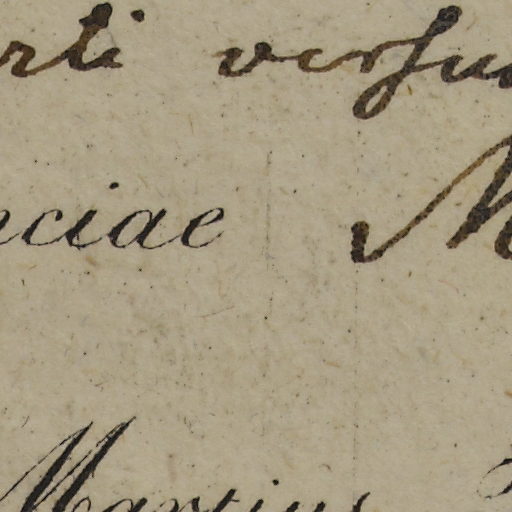 rti versu
nciae M
Martius